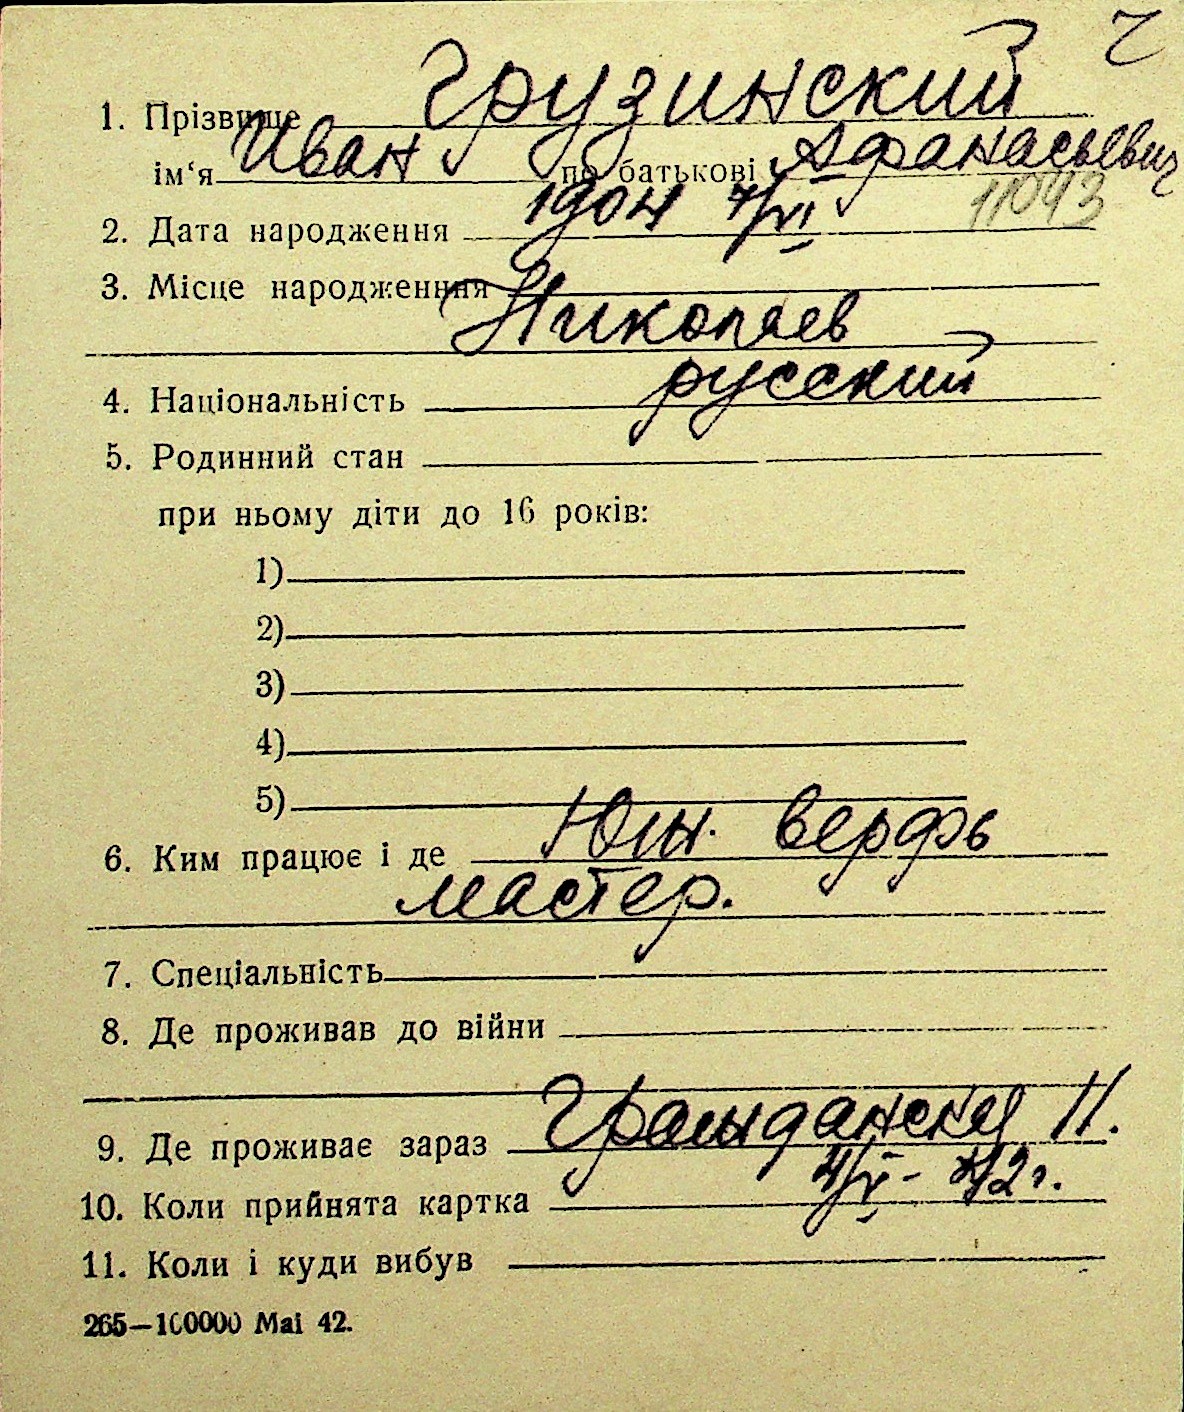 ч
1. Прізвище Грузинский
ім‘я Иван по батькові Афанасьевич
11043
2. Дата народження 1904 7/VI
3. Місце народженння
Николаев
4. Національність русский
5. Родинний стан
при ньому діти до 16 років:
1)
2)
3)
4)
5)
6. Ким працює і де Южн. верфь
мастер.
7. Спеціальність
8. Де проживав до війни
9. Де проживає зараз Гражданская 11.
10. Коли прийнята картка 4/V - 42 г.
11. Коли і куди вибув
265—100000 Mai 42.